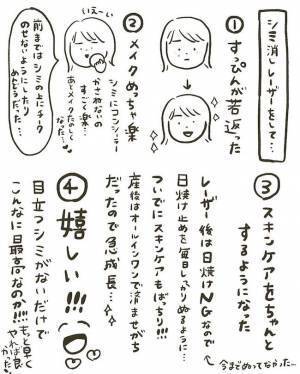 シミ消しレーザーをして…
①すっぴんが若返った
②メイクめっちゃ楽
いえーい
シミにコンシーラー
かさねないの
すごく楽…
あとメイクたのしく
なった…
前まではシミの上にチーク
のせないようにしたり
めんどうだった…
③スキンケアをちゃんと
するようになった
レーザー後は日焼けNGなので
日焼け止めを毎日しっかりぬるように…
今までぬってなかった…
ついでにスキンケアもばっちり!!
産後はオールインワンで済ませがち
だったので急成長…
④嬉しい!!!
目立つシミがないだけで
こんなに最高なのか!!!
もっと早く
やれば良
かった